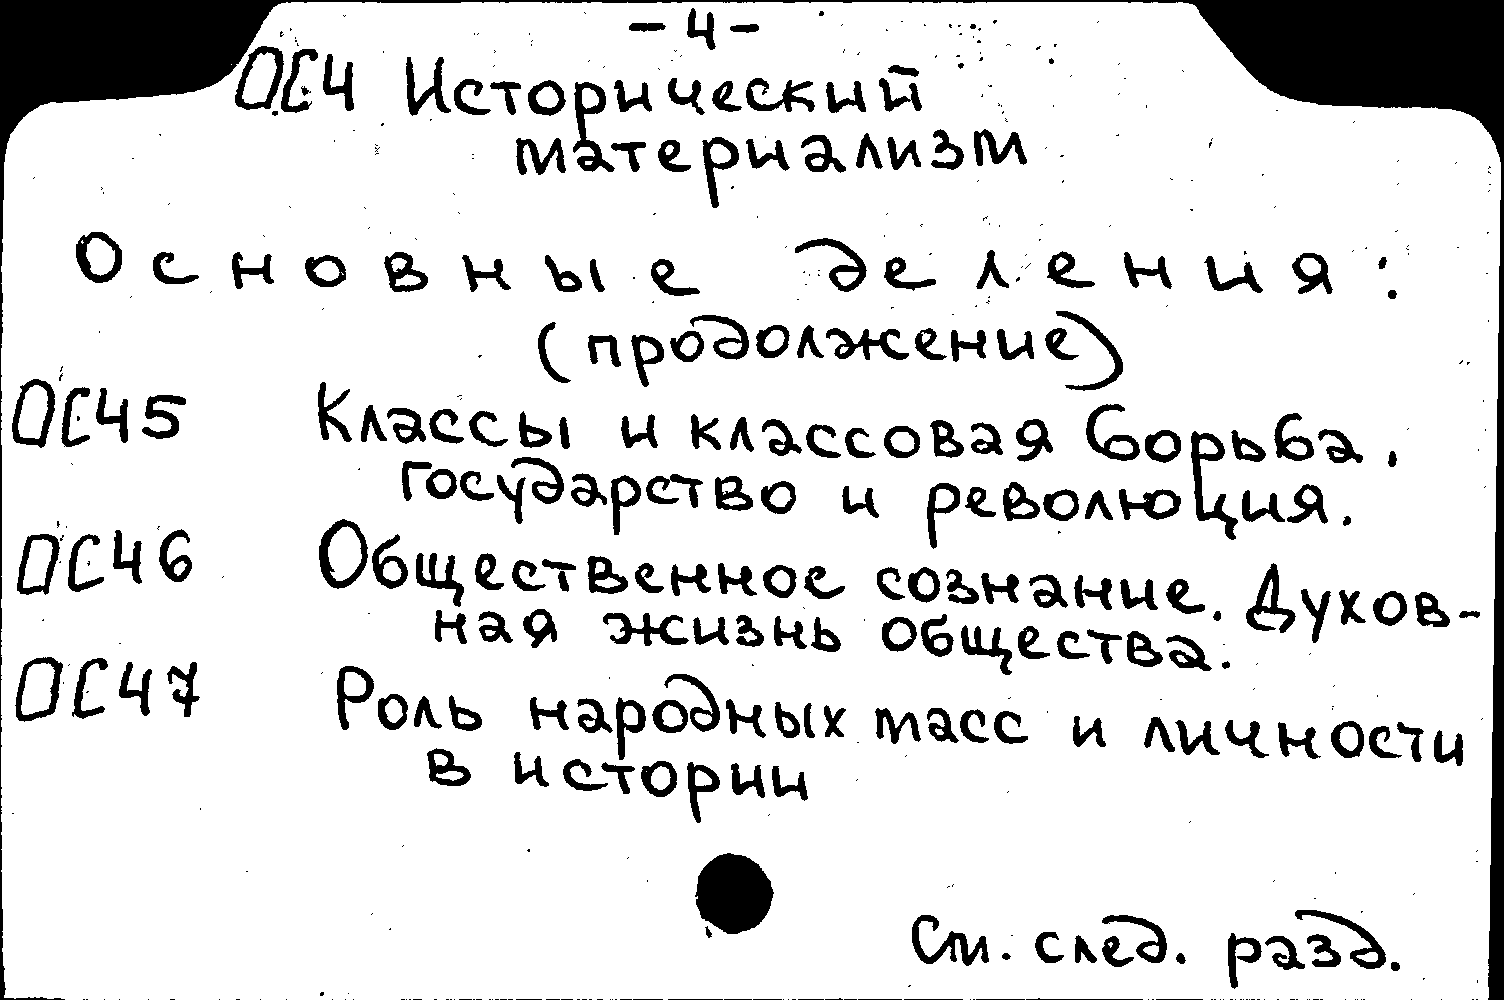 – 4 –
ОС4 Исторический
материализм
Основные деления:
(продолжение)
ОС45 Классы и классовая борьба.
Государство и революция.
ОС46 Общественное сознание. Духов-
ная жизнь общества.
ОС47 Роль народных масс и личности
в истории
См. след. разд.